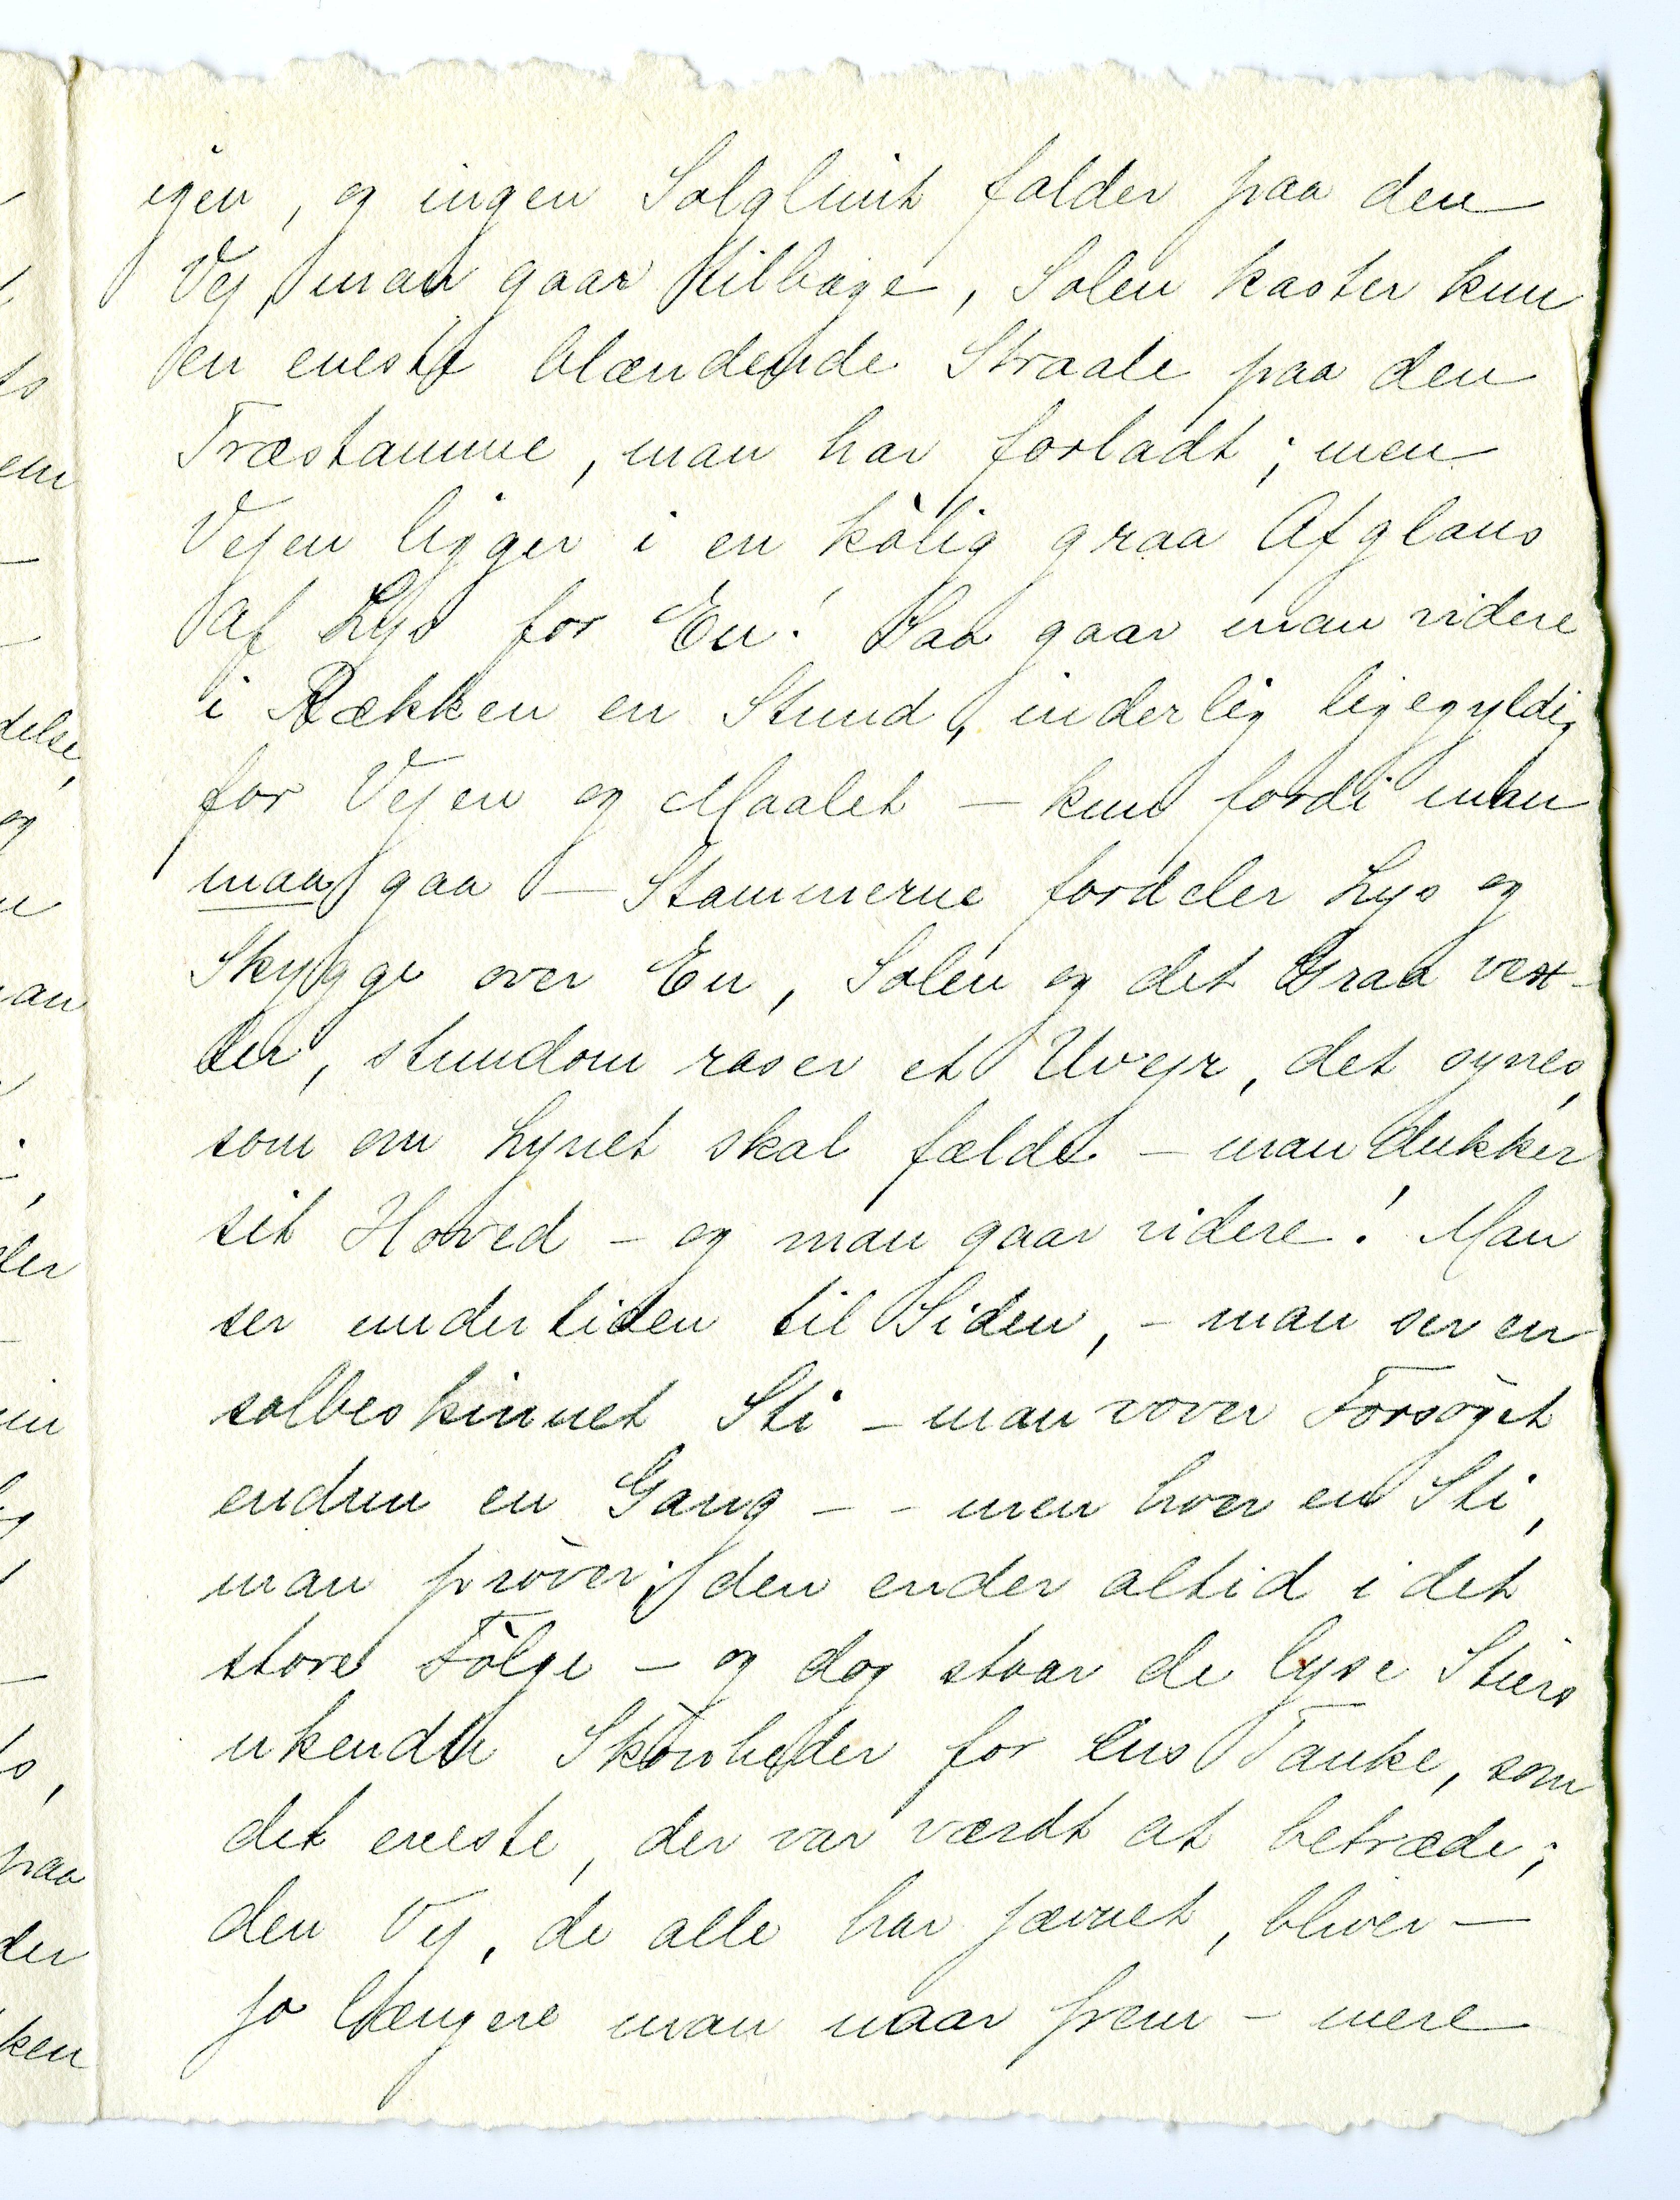 igen, og ingen Solglimt falder paa den
Vej, man gaar tilbage, Solen kaster kun
en eneste blændende Straale paa den
Træstamme, man har forladt; men
Vejen ligger i en kölig graa Afglans
af Lys for En! Saa gaar man videre
i Rækken en Stund, inderlig ligegyldig
for Vejen og Maalet — kun fordi man
maa gaa — Stammerne fordeler Lys og
Skygge over En, Solen og det Graa vex-
ler, stundom raser et Uvejr, det synes,
som om Lynet skal fælde — man dukker
sit Hoved — og man gaar videre! Man
ser undertiden til Siden, — man ser en
solbeskinnet Sti — man vover Forsöget
endnu en Gang — — men hver en Sti,
man pröver, den ender altid i det
store Fölge — og dog staar de lyse Stiers
ukendte Skönheder for Ens Tanke, som
det eneste, der var værdt at betræde;
den Vej, de alle har jævnet, bliver —
jo længere man naar frem — mere
delse,
og
an
der
paa
der
ken